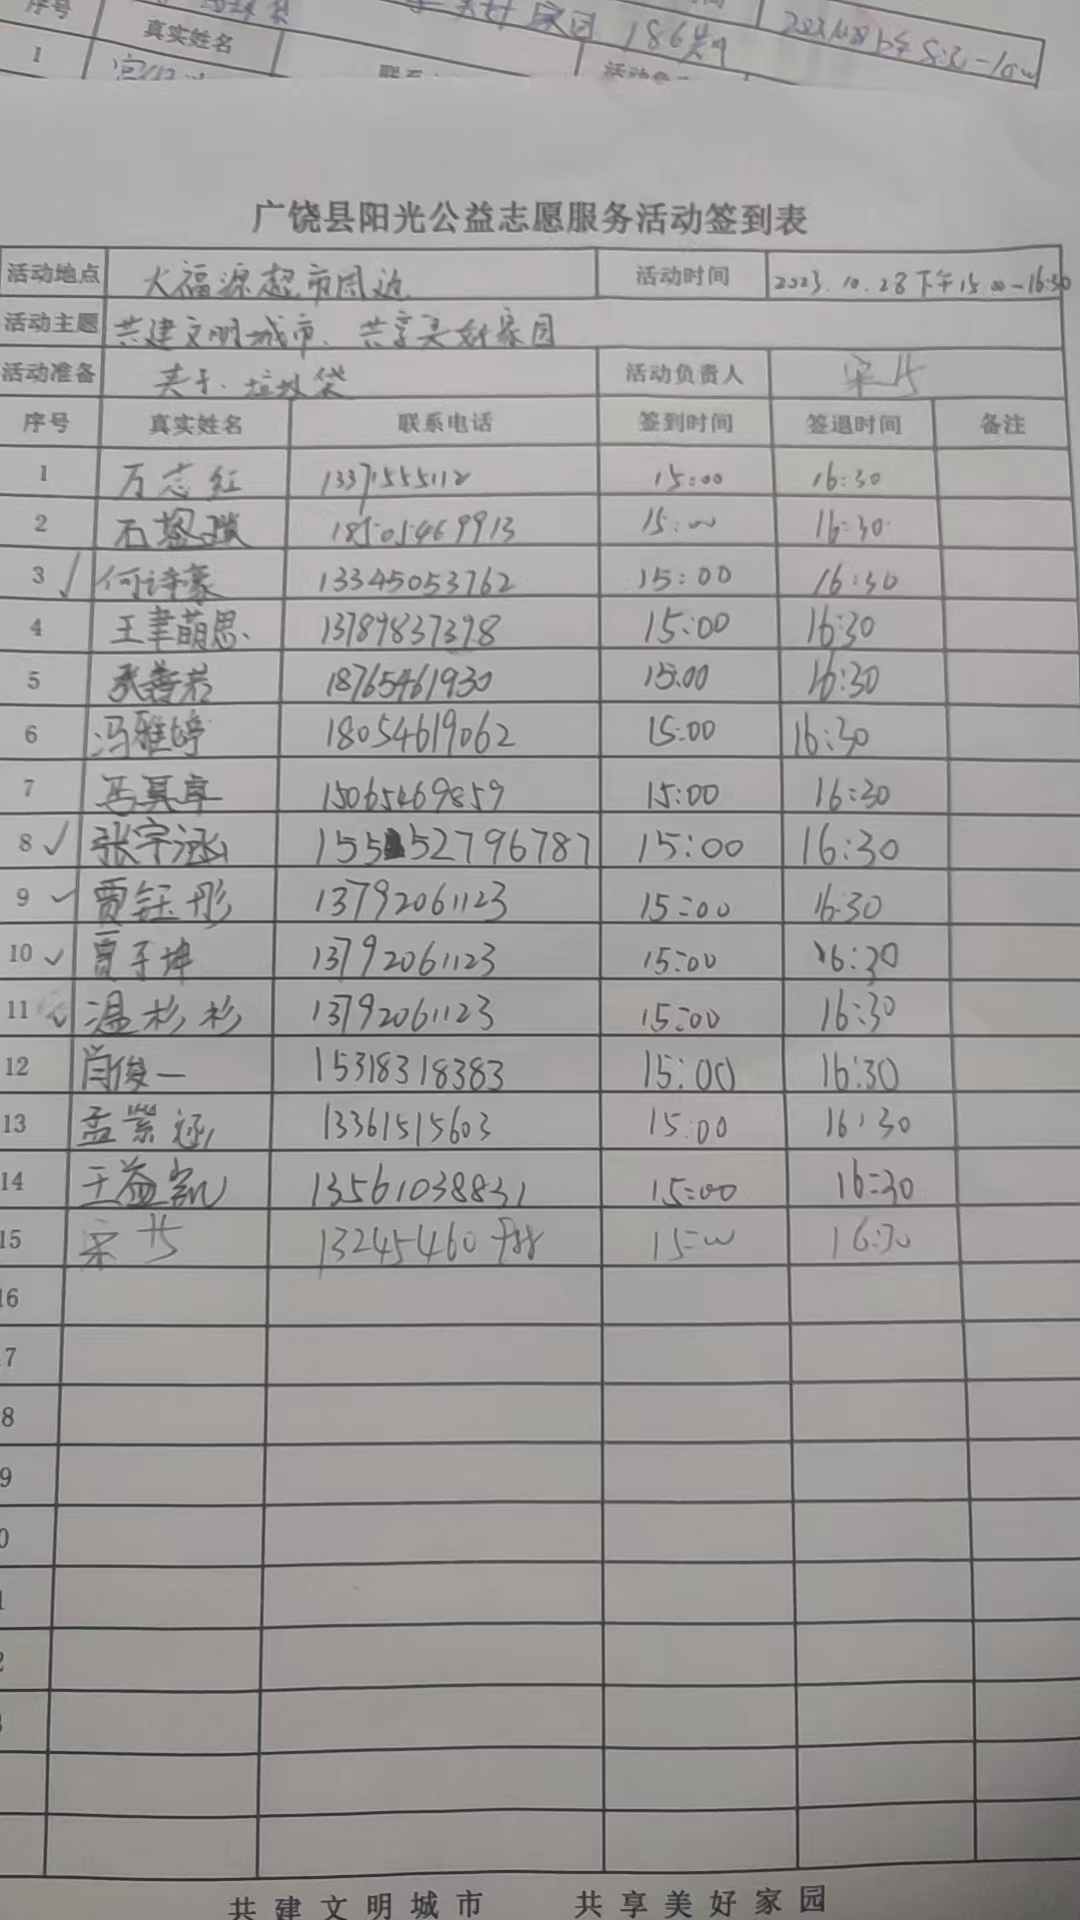 序号 真实姓名
186期
1
广饶县阳光公益志愿服务活动签到表
活动地点 大福源超市周边 活动时间 2023.10.28下午15:00-16:30
活动主题 共建文明城市、共享美好家园
活动准备 夹子、垃圾袋 活动负责人
序号 真实姓名 联系电话 签到时间 签退时间 备注
1 万志红 13371555112 15:00 16:30
2 18505469913 15:00 16:30
3 何诗豪 13345053762 15:00 16:30
4 王聿萌思 13789837398 15:00 16:30
5 张善若 18765461930 15:00 16:30
6 冯雅婷 18054619062 15:00 16:30
7 15065469859 15:00 16:30
8 张宇涵 15552796787 15:00 16:30
9 贾钰彤 13792061123 15:00 16:30
10 贾子坤 13792061123 15:00 16:30
11 温杉杉 13792061123 15:00 16:30
12 肖俊一 15318318383 15:00 16:30
13 孟紫涵 13361515603 15:00 16:30
14 王益凯 13561038831 15:00 16:30
15 15:00 16:30
16
7
8
9
0
1
2
3
共建文明城市 共享美好家园